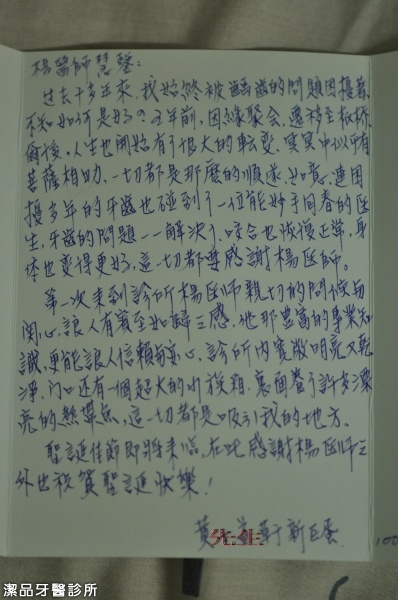 楊醫師慧鑒:
過去十多年來,我始終被齲齒的問題困擾著,
不知如何是好?2年前,因緣聚會,遷移至板橋
爾後,人生也開始有了很大的転变,冥冥中似乎有
菩薩相助,一切都是那麼的順遂、如意,連困
擾多年的牙齒也碰到了一位能妙手回春的医
生,牙齒的問題一一解決了,咬合也恢復正常,身
体也变得更好,這一切都要感謝楊医師。
第一次來到診所楊医師親切的問候与
関心,讓人有賓至如歸之感,他那豐富的專業知
識,更能讓人信賴与安心,診所內寬敞明亮又乾
淨,門口还有一個超大的水族箱,裏面養了許多漂
亮的熱帶魚,這一切都是吸引我的地方。
聖誕佳節即將來臨,在此感謝楊医師之
外也祝賀聖誕快樂!
黃 先生 於新巨蛋
潔品牙醫診所